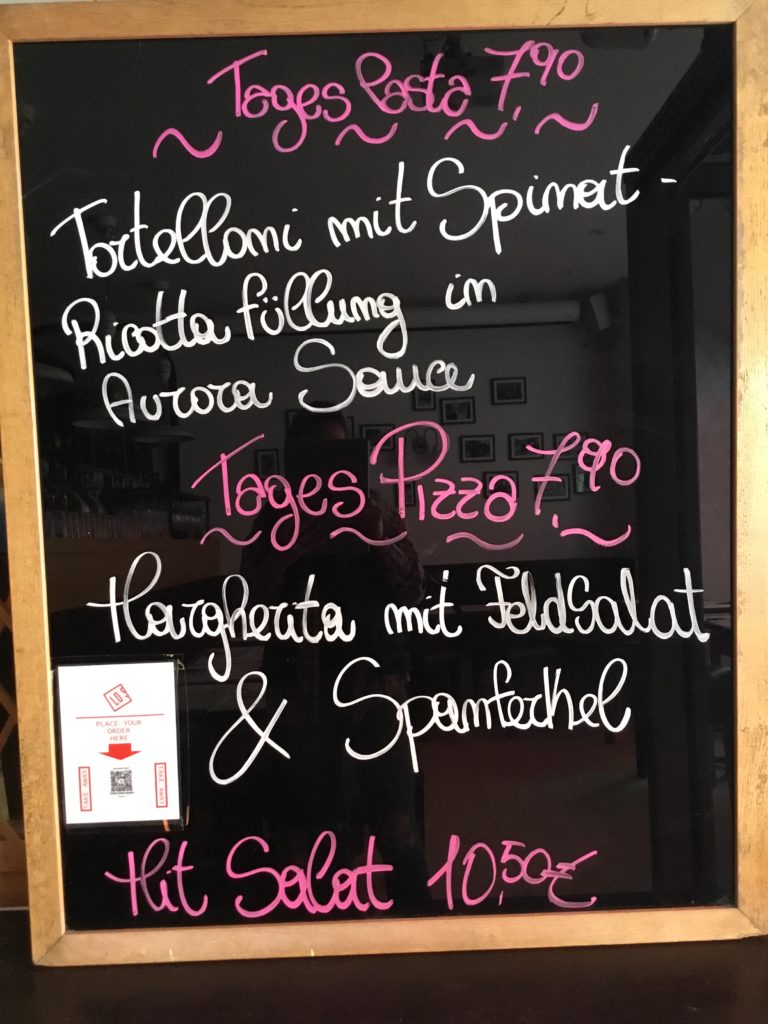 Tages Pasta 7,90
Tortelloni mit Spinat-
Ricotta füllung in
Aurora Sauce
Tages Pizza 7,90
Margherita mit FeldSalat
& Spanferkel
PLACE YOUR
ORDER
HERE
TAKE AWAY
TAKE AWAY
Hit Salat 10,50€